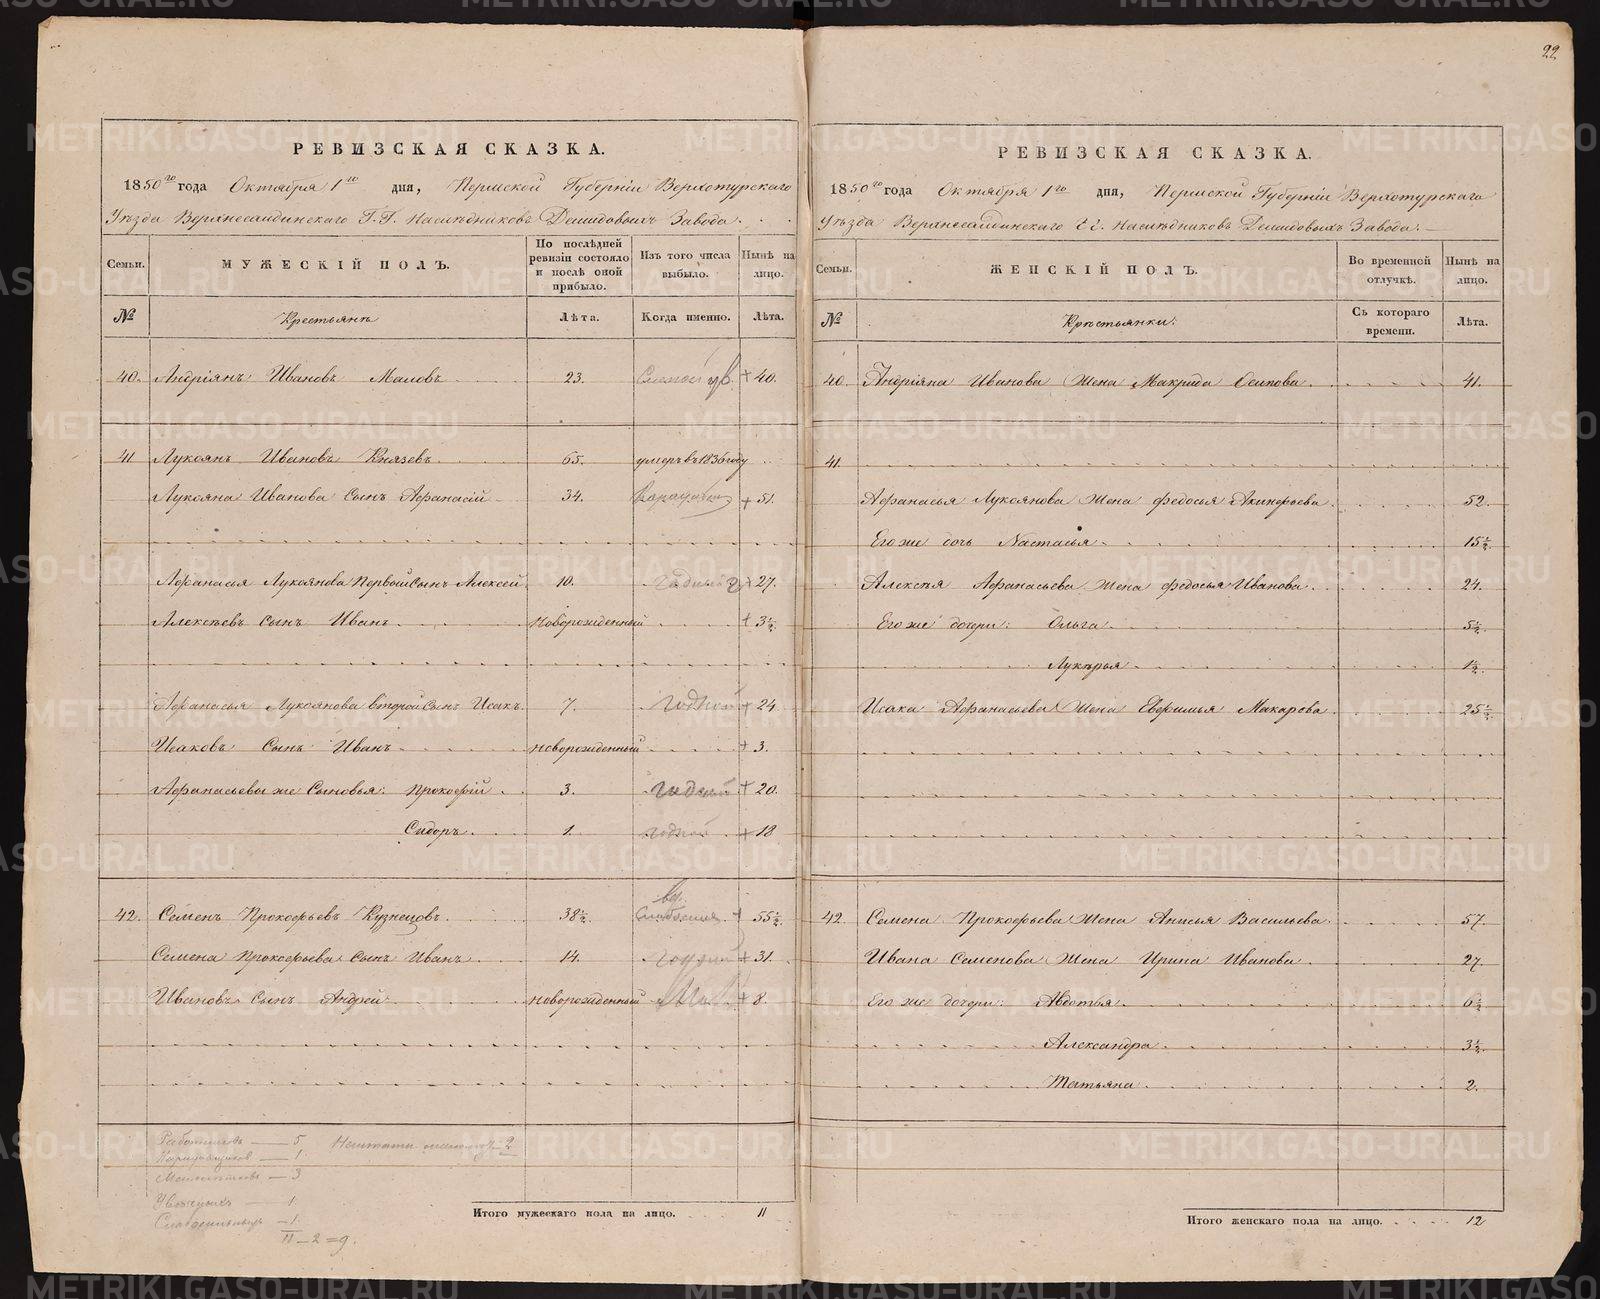 22
РЕВИЗСКАЯ СКАЗКА.
1850го года Октября 1го дня, Пермской Губерніи Верхотурскаго
Уѣзда Верхнесалдинскаго Г.Г. Наслѣдниковъ Демидовыхъ Завода.
Семьи. МУЖЕСКІЙ ПОЛЪ. По послѣдней ревизіи состояло и послѣ оной прибыло. Изъ того числа выбыло. Нынѣ на лицо.
№ Крестьянъ Лѣта. Когда именно. Лѣта.
40. Андріянъ Ивановъ Маловъ 23. Слепой ув. + 40.
41 Лукоянъ Ивановъ Князевъ 65. умеръ въ 1836 году
Лукояна Иванова Сынъ Афанасій 34. + 51.
Афанасья Лукоянова Первый Сынъ Алексей 10. годный + 27.
Алексѣевъ Сынъ Иванъ новорожденный + 3½.
Афанасья Лукоянова второй Сынъ Исакъ 7. годной + 24.
Исаковъ Сынъ Иванъ новорожденный + 3.
Афанасьевы же Сыновья: Прокофій 3. годный + 20.
Сидоръ 1. годной + 18
42. Семенъ Прокофьевъ Кузнецовъ 38½. 55½.
Семена Прокофьева Сынъ Иванъ 14. годный + 31.
Ивановъ Сынъ Андрей новорожденный + 8.
Работниковъ — 5
— 1.
— 3
— 1
— 1.
11 — 2 = 9.
Итого мужескаго пола на лицо. 11
РЕВИЗСКАЯ СКАЗКА.
1850го года Октября 1го дня, Пермской Губерніи Верхотурскаго
Уѣзда Верхнесалдинскаго Г.Г. Наслѣдниковъ Демидовыхъ Завода.
Семьи. ЖЕНСКІЙ ПОЛЪ. Во временной отлучкѣ. Нынѣ на лицо.
№ Крестьянки: Съ котораго времени. Лѣта.
40. Андріяна Иванова Жена Макрида Осипова 41.
41.
Афанасья Лукоянова Жена Федосья Акинфьева 52.
Его же дочь Настасья 15½.
Алексѣя Афанасьева Жена Федосья Иванова 24.
Его же дочери: Ольга 5½.
Лукѣрья 1½.
Исака Афанасьева Жена Евфимья Макарова 25½.
42. Семена Прокофьева Жена Анисья Васильева 57.
Ивана Семенова Жена Ирина Иванова 27.
Его же дочери: Авдотья 6½.
Александра 3½.
Татьяна 2.
Итого женскаго пола на лицо. 12
METRIKI.GASO-URAL.RU